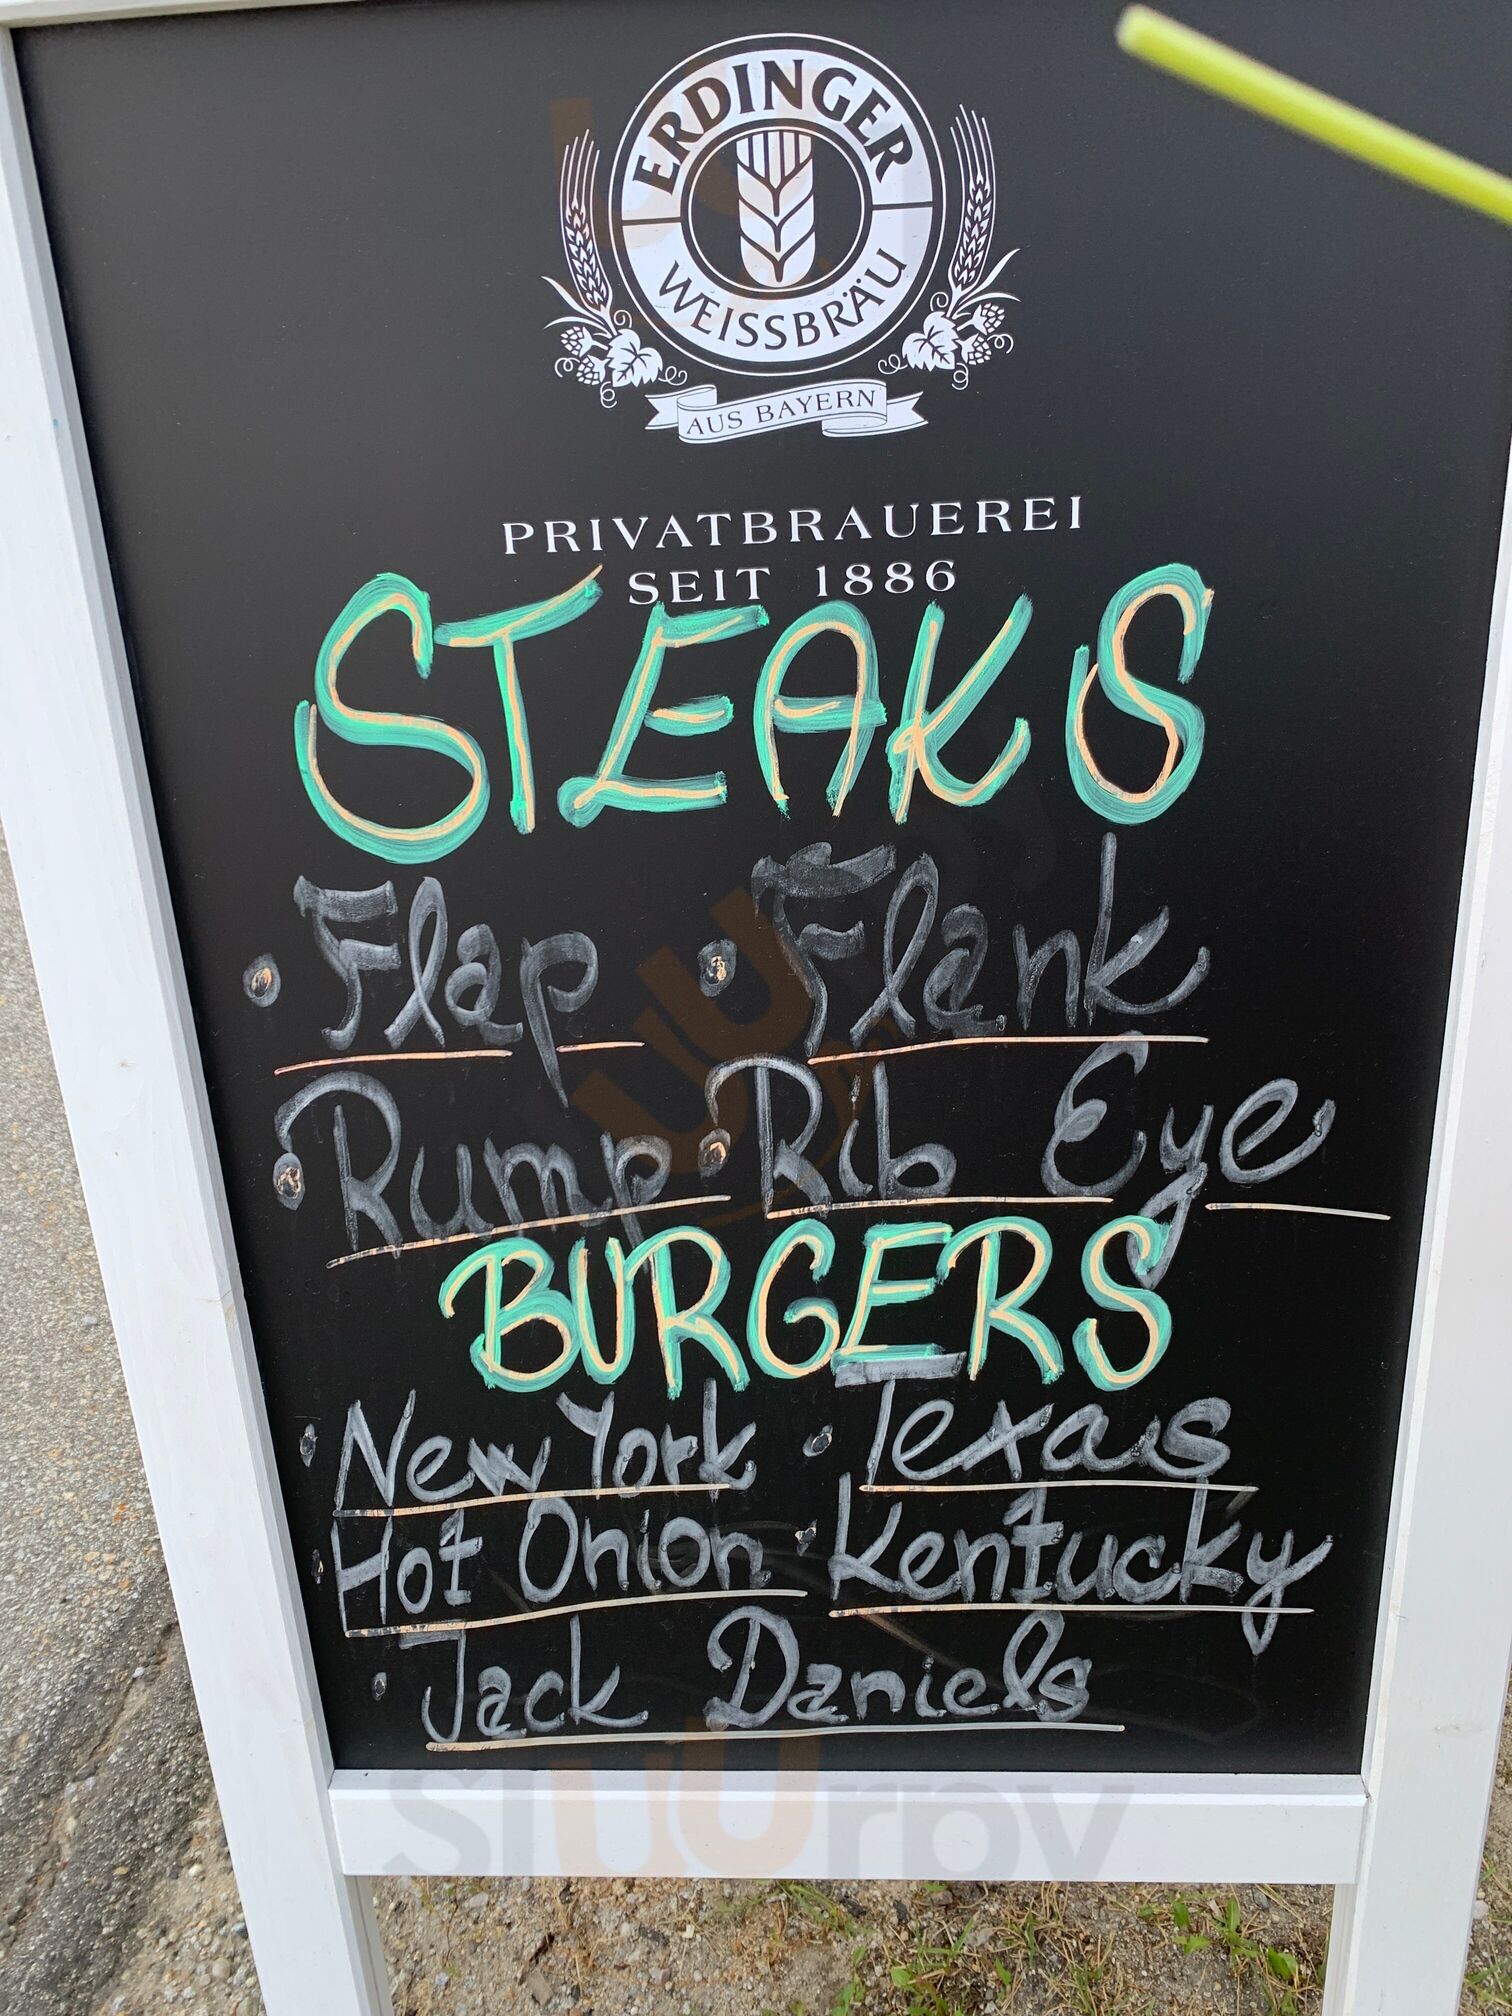 ERDINGER
WEISSBRÄU
AUS BAYERN
PRIVATBRAUEREI
SEIT 1886
STEAKS
• Flap • Flank
• Rump • Rib Eye
BURGERS
• New York • Texas
• Hot Onion • Kentucky
• Jack Daniels
sluurpy